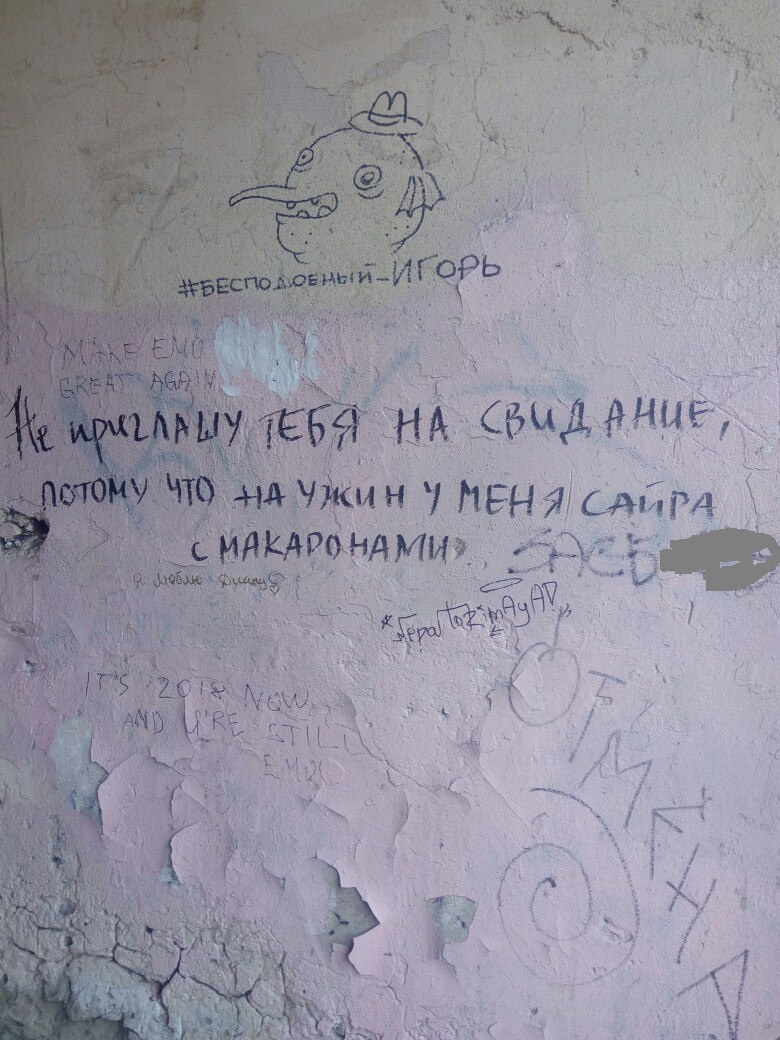 #БЕСПОДОБНЫЙ_ИГОРЬ
MAKE EMO
GREAT AGAIN
Не ПРИГЛАШУ ТЕБЯ НА СВИДАНИЕ,
ПОТОМУ ЧТО НА УЖИН У МЕНЯ САЙРА
С МАКАРОНАМИ
Я люблю
IT'S 2018 NOW
AND U'RE STILL
EMO